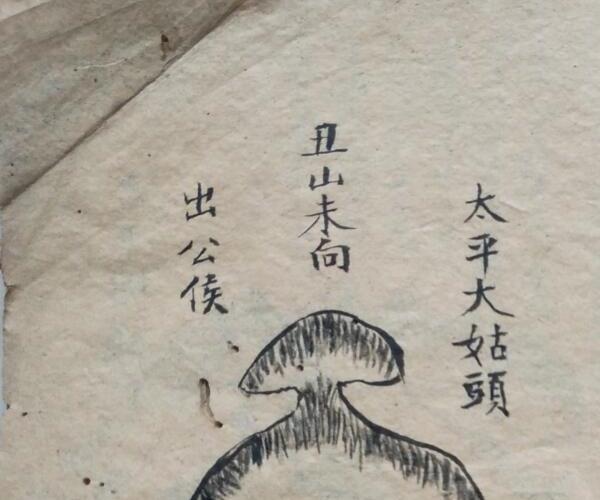 太平大姑頭
丑山未向
出公侯